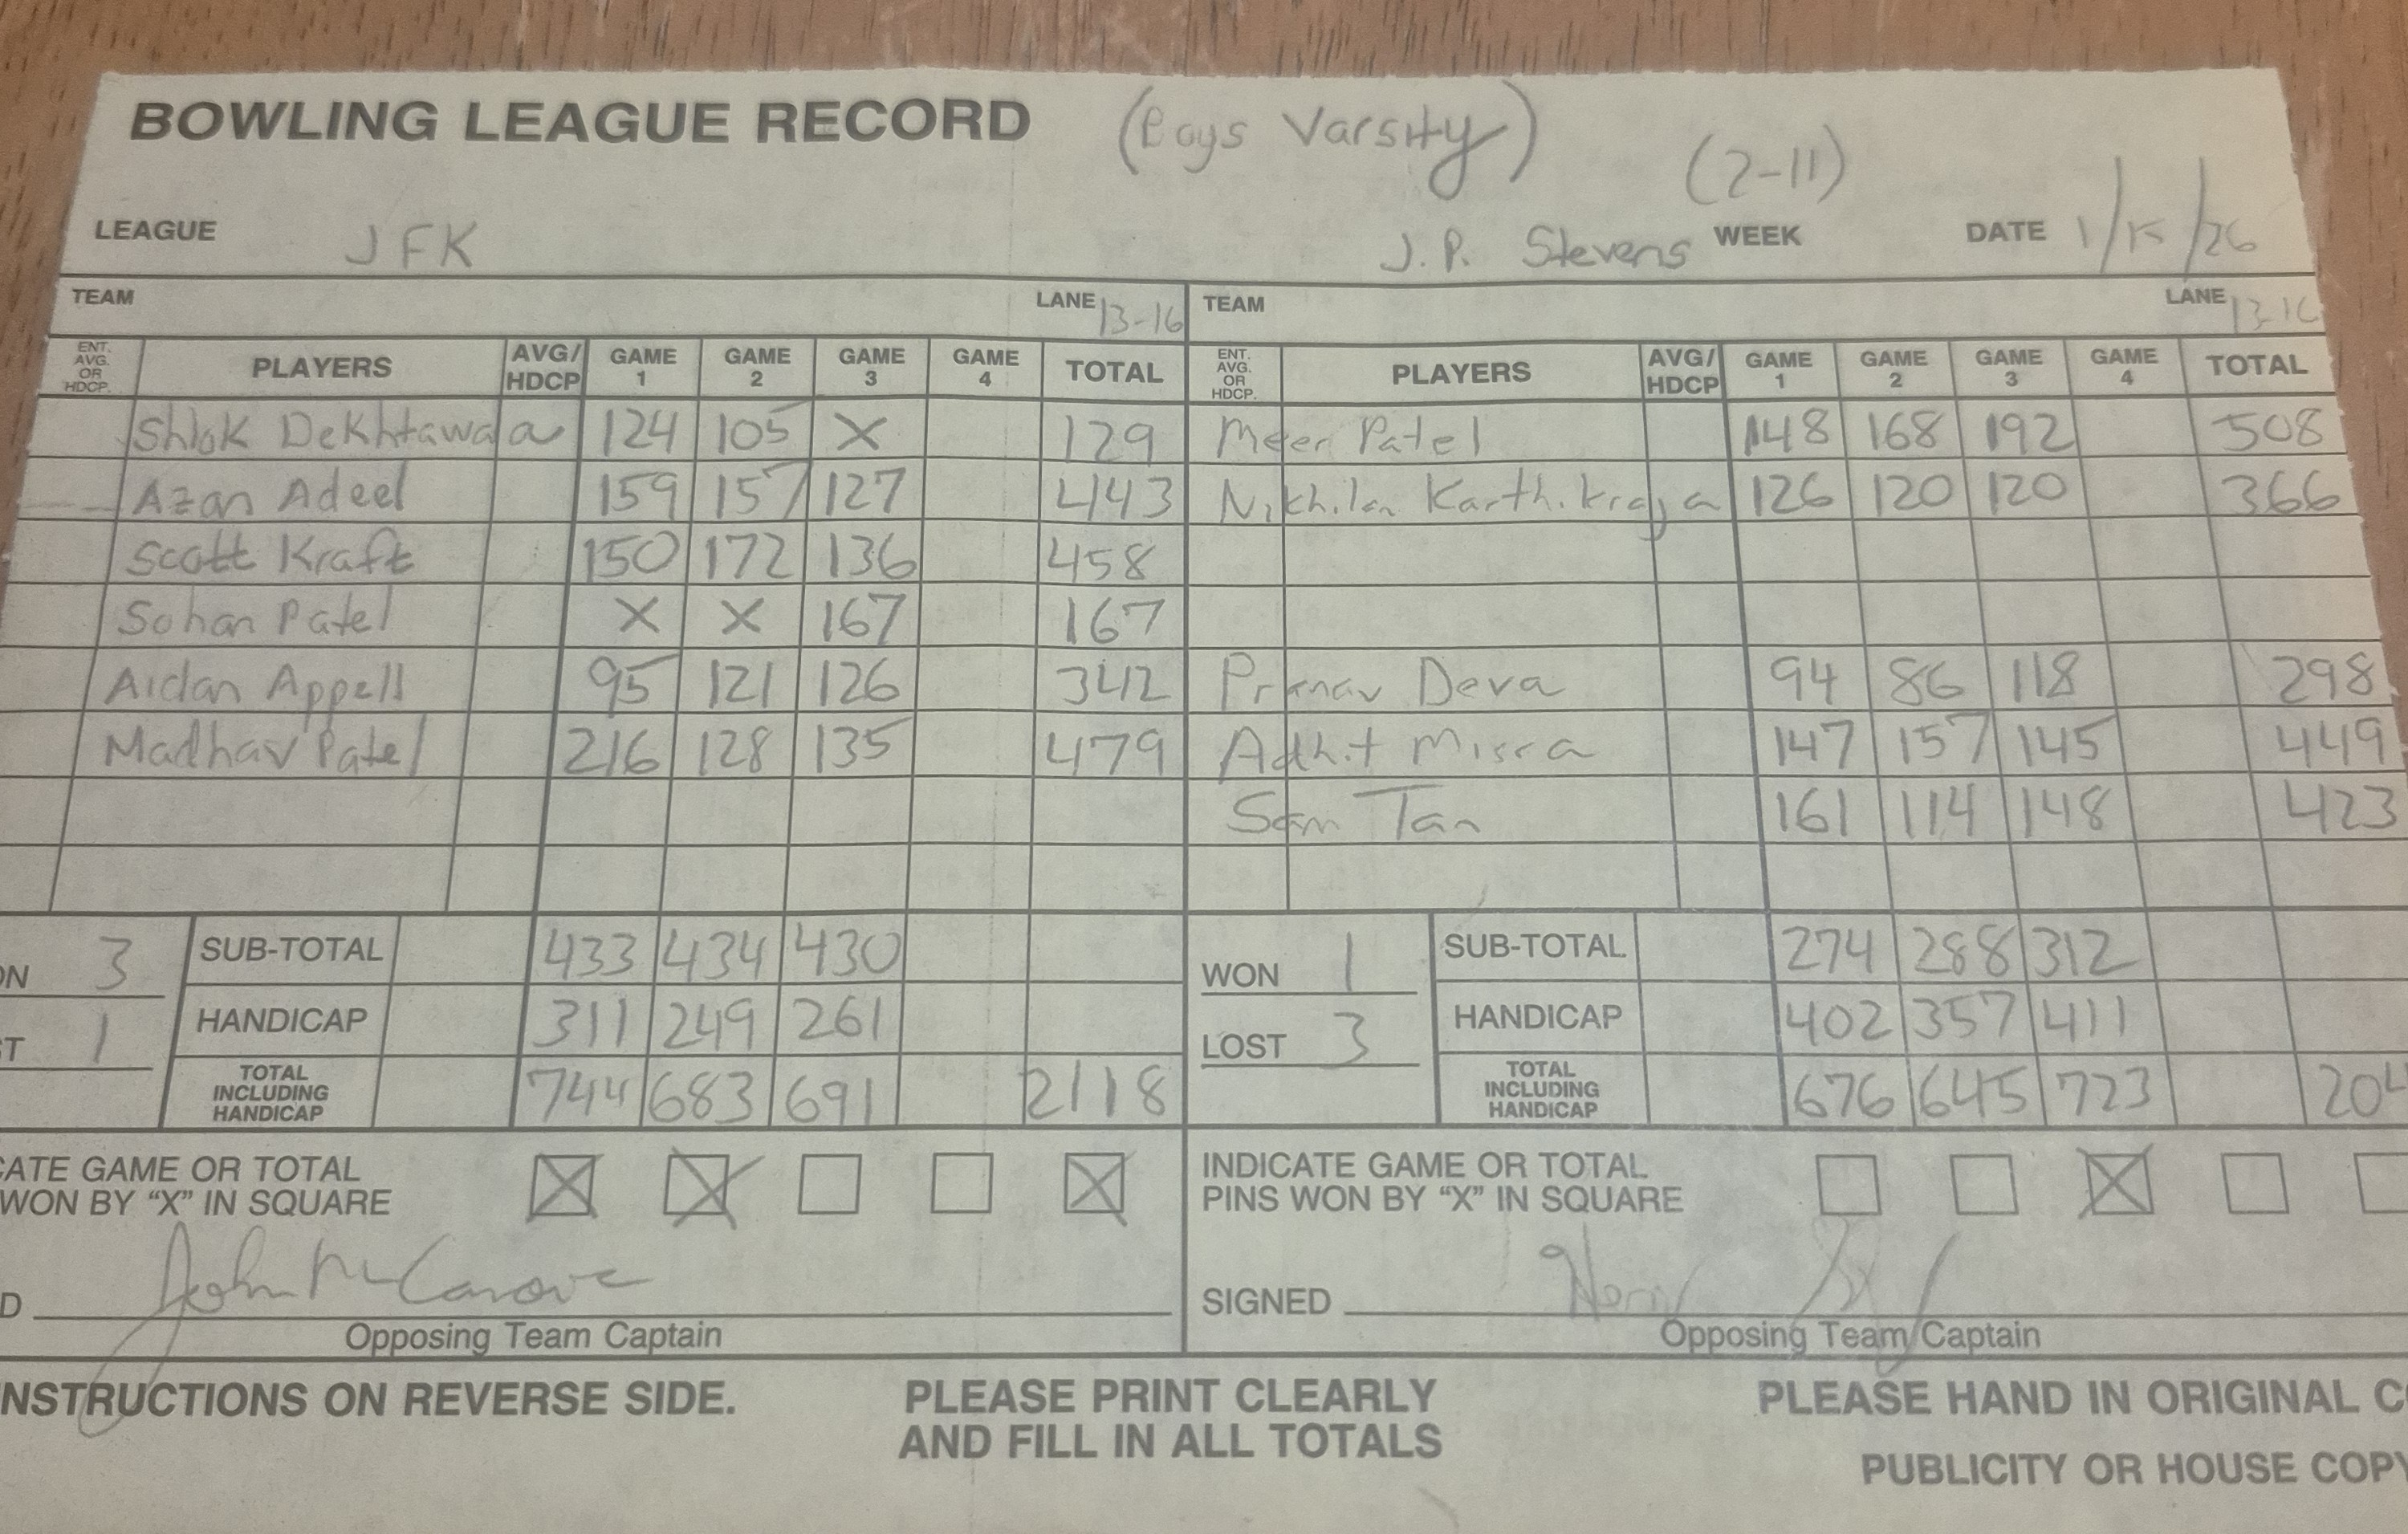 BOWLING LEAGUE RECORD (Boys Varsity) (2-11)
LEAGUE JFK J.P. Stevens WEEK DATE 1/15/26
TEAM LANE 13-16 TEAM LANE 13-16
ENT. AVG. OR HDCP. PLAYERS AVG/HDCP GAME 1 GAME 2 GAME 3 GAME 4 TOTAL ENT. AVG. OR HDCP. PLAYERS AVG/HDCP GAME 1 GAME 2 GAME 3 GAME 4 TOTAL
Shlok Dekhtawala 124 105 X 129 Meer Patel 148 168 192 508
Azan Adeel 159 157 127 443 Nikhilan Karthikraja 126 120 120 366
Scott Kraft 150 172 136 458
Sohan Patel X X 167 167
Aidan Appell 95 121 126 342 Pranav Deva 94 86 118 298
Madhav Patel 216 128 135 479 Adhit Misra 147 157 145 449
Sam Tan 161 114 148 423
ON 3 SUB-TOTAL 433 434 430 WON 1 SUB-TOTAL 274 288 312
ST 1 HANDICAP 311 249 261 LOST 3 HANDICAP 402 357 411
TOTAL INCLUDING HANDICAP 744 683 691 2118 TOTAL INCLUDING HANDICAP 676 645 723 204
CATE GAME OR TOTAL X X X INDICATE GAME OR TOTAL X
WON BY "X" IN SQUARE PINS WON BY "X" IN SQUARE
D John SIGNED
Opposing Team Captain Opposing Team Captain
INSTRUCTIONS ON REVERSE SIDE. PLEASE PRINT CLEARLY PLEASE HAND IN ORIGINAL C
AND FILL IN ALL TOTALS
PUBLICITY OR HOUSE COPY